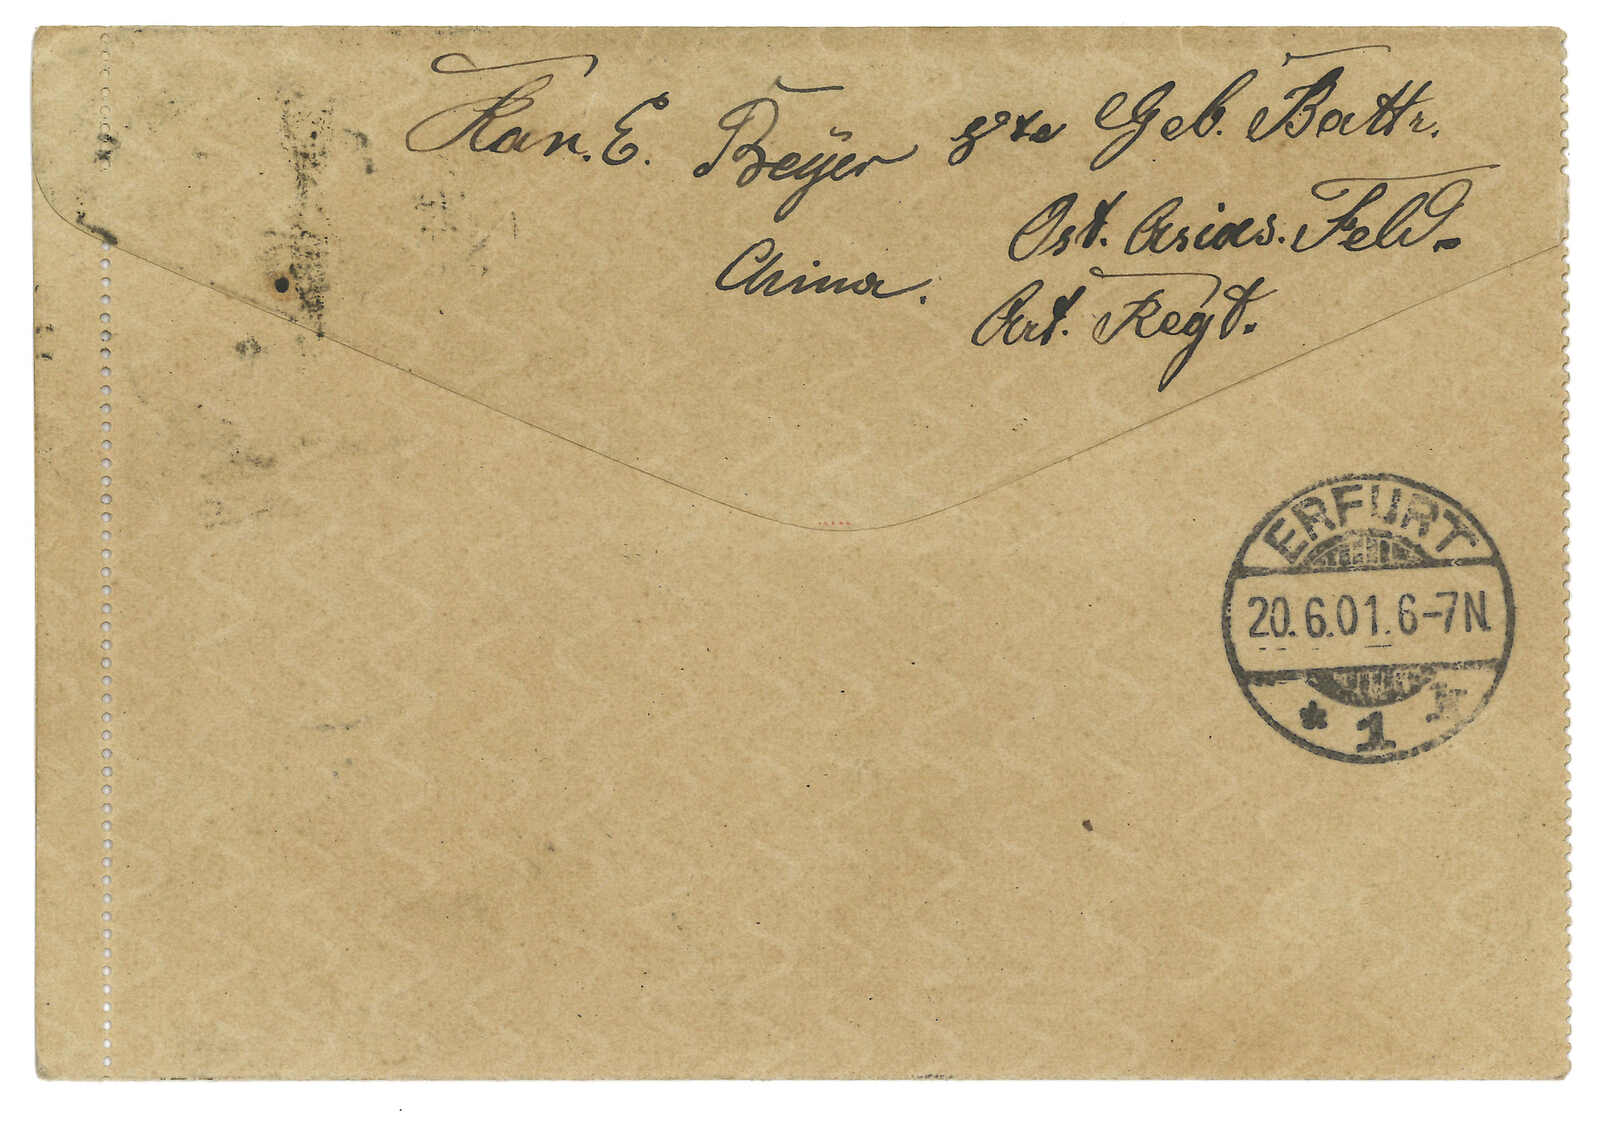 Kan. E. Beÿer 8te Geb. Battr.
Ost. Asias. Feld-
China. Art. Regt.
ERFURT
20.6.01.6-7N.
* 1